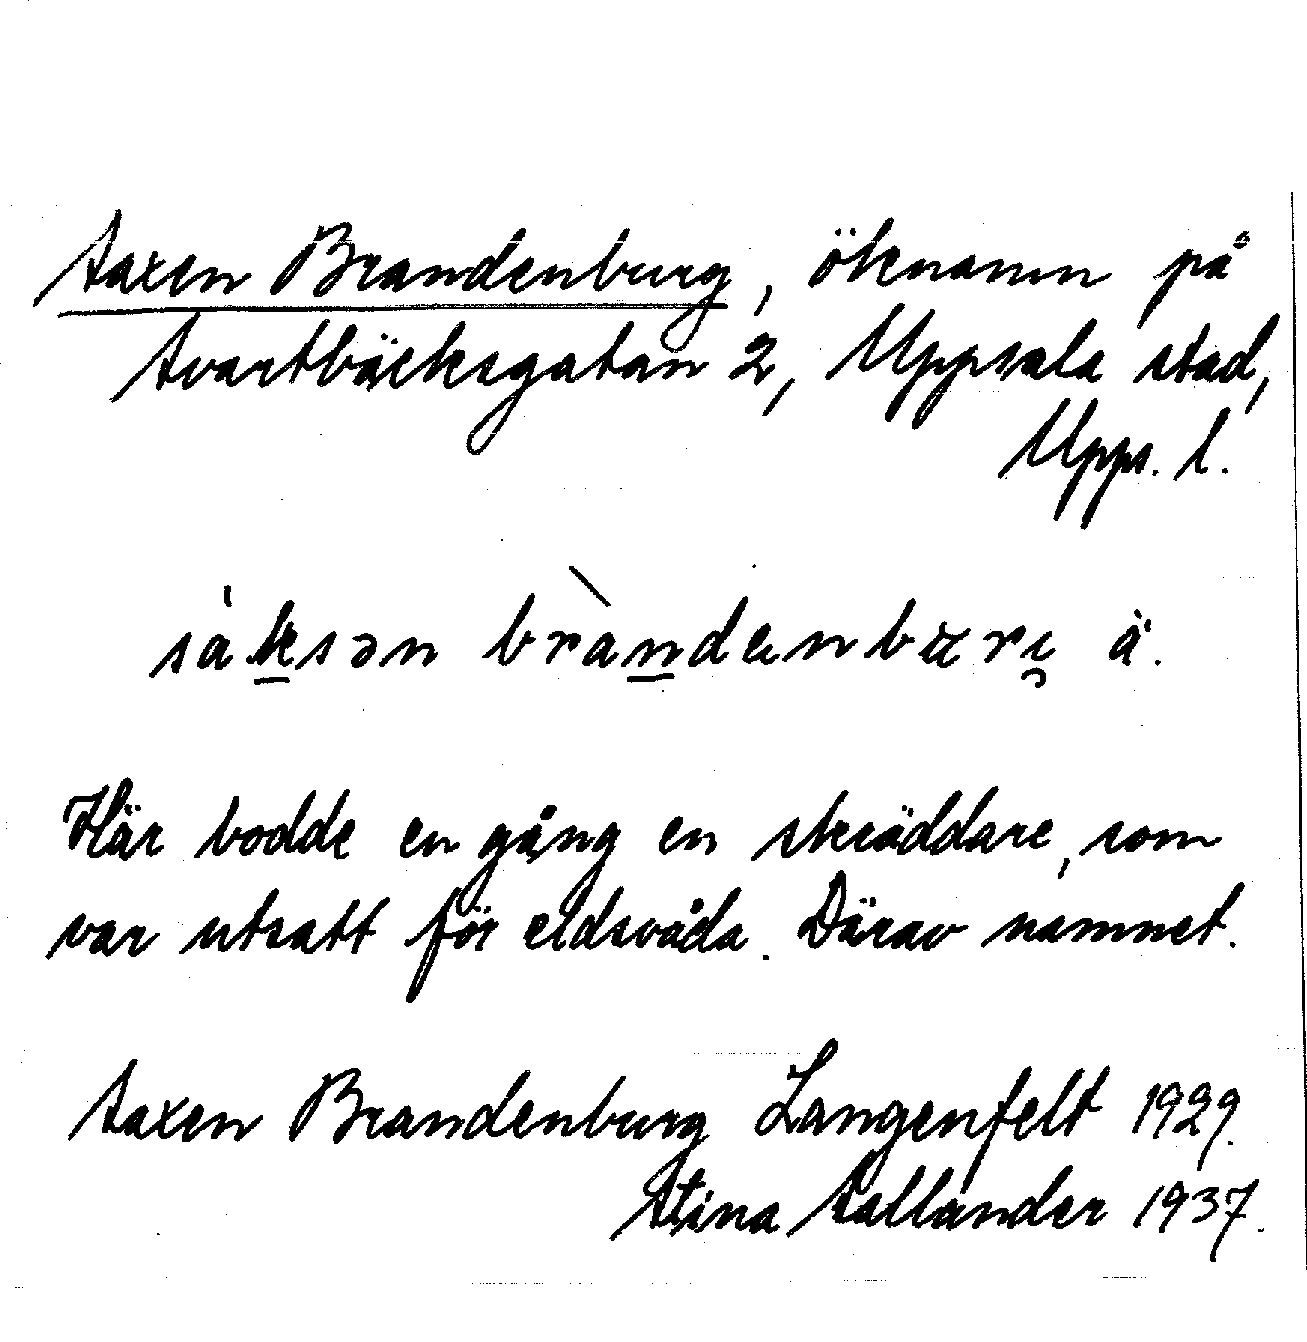 Saxen Brandenburg, öknamn på
Svartbäcksgatan 2, Uppsala stad,
Upps. l.
Här bodde en gång en skräddare, som
var utsatt för eldsvåda. Därav namnet.
Saxen Brandenburg Langenfelt 1929.
Stina Sallander 1937.